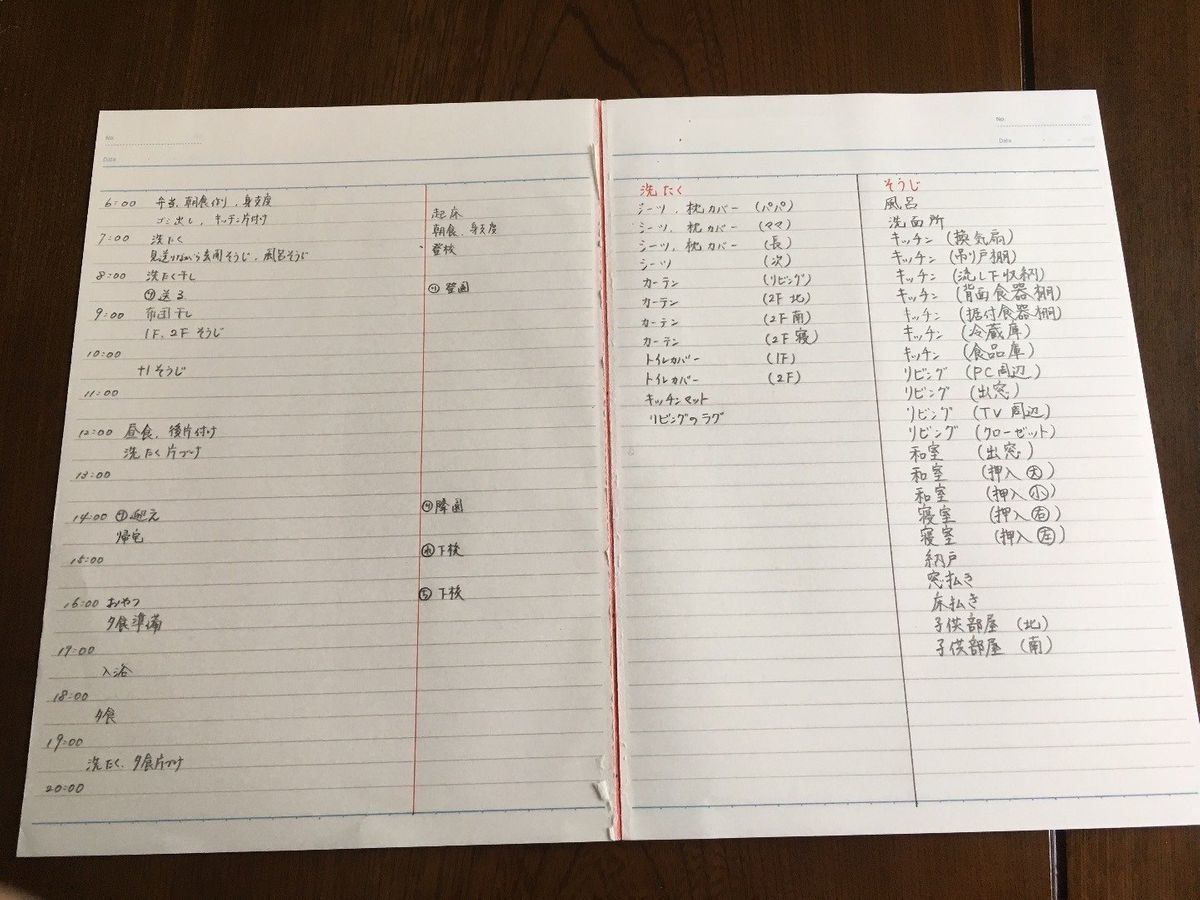 No.
Date
6:00 弁当、朝食作り、身支度
ゴミ出し、キッチン片付け
7:00 洗たく
見送りながら玄関そうじ、風呂そうじ
8:00 洗たく干し
送る
9:00 布団干し
1F、2F そうじ
10:00
+1 そうじ
11:00
12:00 昼食、後片付け
洗たく片づけ
13:00
14:00 迎え
帰宅
15:00
16:00 おやつ
夕食準備
17:00
入浴
18:00
夕食
19:00
洗たく、夕食片づけ
20:00
起床
朝食、身支度
登校
登園
降園
下校
下校
No.
Date
洗たく
シーツ、枕カバー (パパ)
シーツ、枕カバー (ママ)
シーツ、枕カバー (長)
シーツ (次)
カーテン (リビング)
カーテン (2F 北)
カーテン (2F 南)
カーテン (2F 寝)
トイレカバー (1F)
トイレカバー (2F)
キッチンマット
リビングのラグ
そうじ
風呂
洗面所
キッチン (換気扇)
キッチン (吊り戸棚)
キッチン (流し下収納)
キッチン (背面食器棚)
キッチン (据付食器棚)
キッチン (冷蔵庫)
キッチン (食品庫)
リビング (PC周辺)
リビング (出窓)
リビング (TV周辺)
リビング (クローゼット)
和室 (出窓)
和室 (押入㊅)
和室 (押入㊙)
寝室 (押入㊨)
寝室 (押入㊧)
納戸
窓拭き
床拭き
子供部屋 (北)
子供部屋 (南)